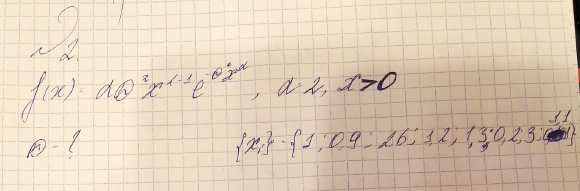 №2.
f(x) = αΘ²x^{α-1}e^{-Θ²x^α}, α=2, x>0
Θ-? {x_i} = {1; 0,9; 2,6; 1,2; 1,3; 0,2; 3; 1,1}